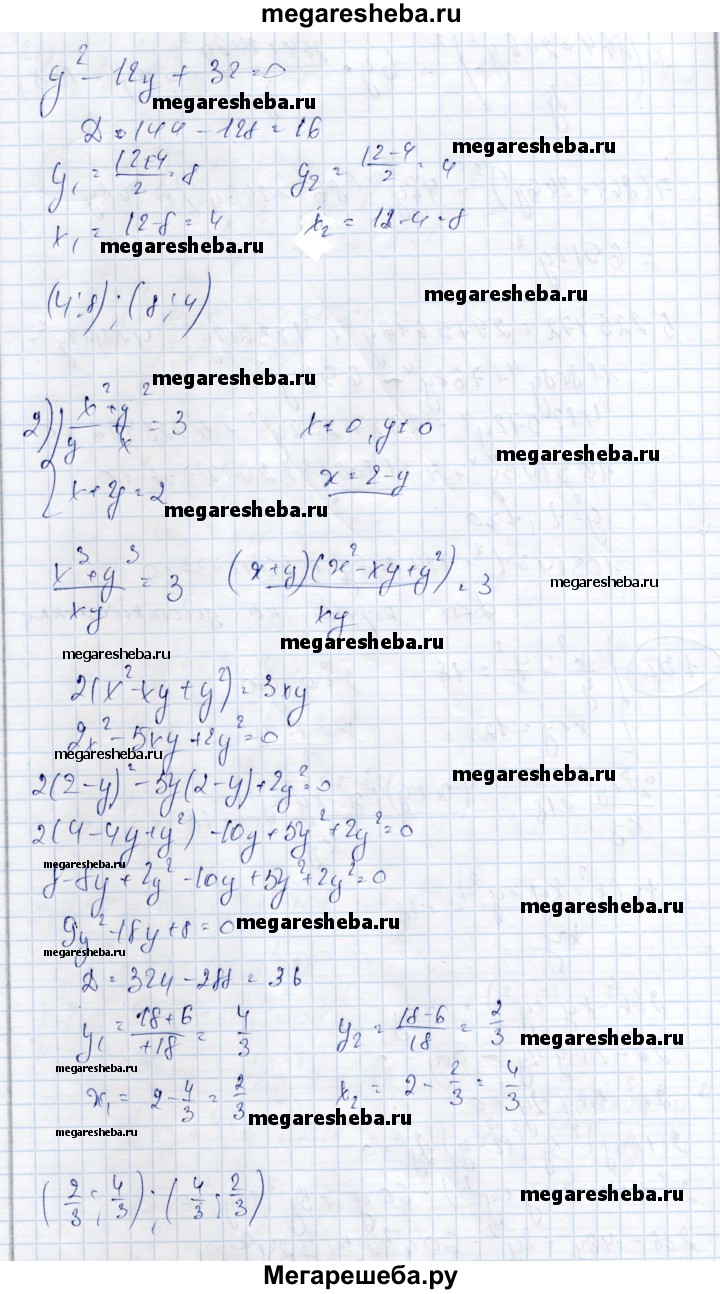 megaresheba.ru
y² - 12y + 32 = 0
megaresheba.ru
D = 144 - 128 = 16
megaresheba.ru
y₁ = (12+4)/2 = 8    y₂ = (12-4)/2 = 4
x₁ = 12-8 = 4    x₂ = 12-4 = 8
megaresheba.ru
megaresheba.ru
(4;8);(8;4)
megaresheba.ru
2) { x²/y + y²/x = 3    x≠0, y≠0
megaresheba.ru
x+y=2    x=2-y
megaresheba.ru
(x³+y³)/xy = 3    (x+y)(x²-xy+y²)/xy = 3
megaresheba.ru
megaresheba.ru
megaresheba.ru
2(x²-xy+y²)=3xy
2x²-5xy+2y²=0
megaresheba.ru
megaresheba.ru
2(2-y)²-5y(2-y)+2y²=0
2(4-4y+y²)-10y+5y²+2y²=0
megaresheba.ru
8-8y+2y²-10y+5y²+2y²=0
megaresheba.ru
9y²-18y+8=0
megaresheba.ru
D = 324-288 = 36
y₁ = (18+6)/+18 = 4/3    y₂ = (18-6)/18 = 2/3
megaresheba.ru
megaresheba.ru
x₁ = 2-4/3 = 2/3    x₂ = 2-2/3 = 4/3
megaresheba.ru
megaresheba.ru
(2/3;4/3);(4/3;2/3)
megaresheba.ru
Мегарешеба.ру